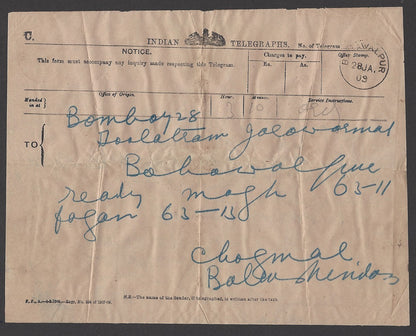 C.
INDIAN TELEGRAPHS. No. of Telegram
NOTICE.
This form must accompany any inquiry made respecting this Telegram.
Charges to pay.
Rs. As.
Office Stamp.
BAHAWALPUR
28 JA.
09
Office of Origin. Hour. Minute. Service Instructions.
Handed in at
3 10
Bombay 28
TO
Bahawalpur
ready magh 63-11
fagan 63-13
Chogmal
N.B.—The name of the Sender, if telegraphed, is written after the text.